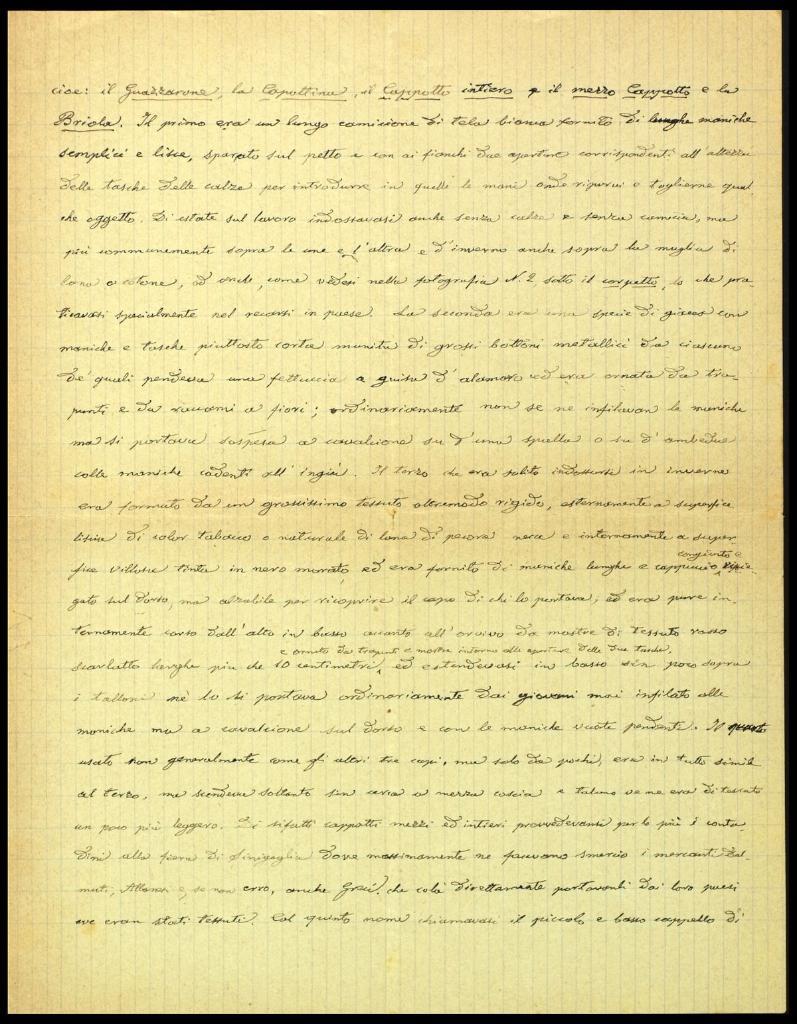 cioè: il Guazzarone, la Capottina, il Cappotto intiero e il mezzo Cappotto e la
Briola. Il primo era un lungo camicione di tela bianca fornito di lunghe maniche
semplici e lisce, sparato sul petto e con ai fianchi due aperture corrispondenti all'altezza
delle tasche delle calze per introdurre in quelle le mani onde riporvi e toglierne qual
che oggetto. Di estate sul lavoro indossavasi anche senza calze e senza camicia, ma
più communemente sopra le une e l'altra e d'inverno anche sopra la maglia di
lana o cotone, ed anche, come vedesi nella fotografia N. 2, sotto il corpetto, lo che pra-
ticavasi specialmente nel recarsi in paese. La seconda era una specie di giacca con
maniche e tasche piuttosto corta munita di grossi bottoni metallici da ciascuno
de' quali pendeva una fettuccia a guisa d'alamaro ed era ornata da tra-
punti e da raccami a fiori; ordinariamente non se ne infilavan le maniche
ma si portava sospesa a cavalcione su d'una spalla o su d'ambedue
colle maniche cadenti all'ingiù. Il terzo che era solito indossarsi in inverno
era formato da un grossissimo tessuto oltremodo rigido, esternamente a superfice
liscia di color tabacco o naturale di lana di pecora nera e internamente a super-
fice villosa tinta in nero morato ed era fornito di maniche lunghe e cappuccio congiunto e ripie-
gato sul dorso, ma alzabile per ricoprire il capo di chi lo portava; ed era pure in-
ternamente corso dall'alto in basso accanto all'orlivo da mostre di tessuto rosso
e ornato da trapunti e mostre intorno alle aperture delle due tasche,
scarlatto larghe più che 10 centimetri, ed estendevasi in basso sin poco sopra
i talloni nè lo si portava ordinariamente dai giovani mai infilato alle
maniche ma a cavalcione sul dorso e con le maniche vuote pendenti. Il quarto
usato non generalmente come gli altri tre capi, ma solo da pochi, era in tutto simile
al terzo, ma scendeva soltanto sin circa a mezza coscia e talune ve ne era di tessuto
un poco più leggero. Di sifatti cappotti mezzi ed intieri provvedevansi per lo più i conta-
dini alla fiera di Sinigaglia dove massimamente ne facevano smercio i mercanti Dal-
mati, Albanesi e, se non erro, anche Greci che colà direttamente portavanli dai loro paesi
ove eran stati tessuti. Col quinto nome chiamavasi il piccolo e basso cappello di